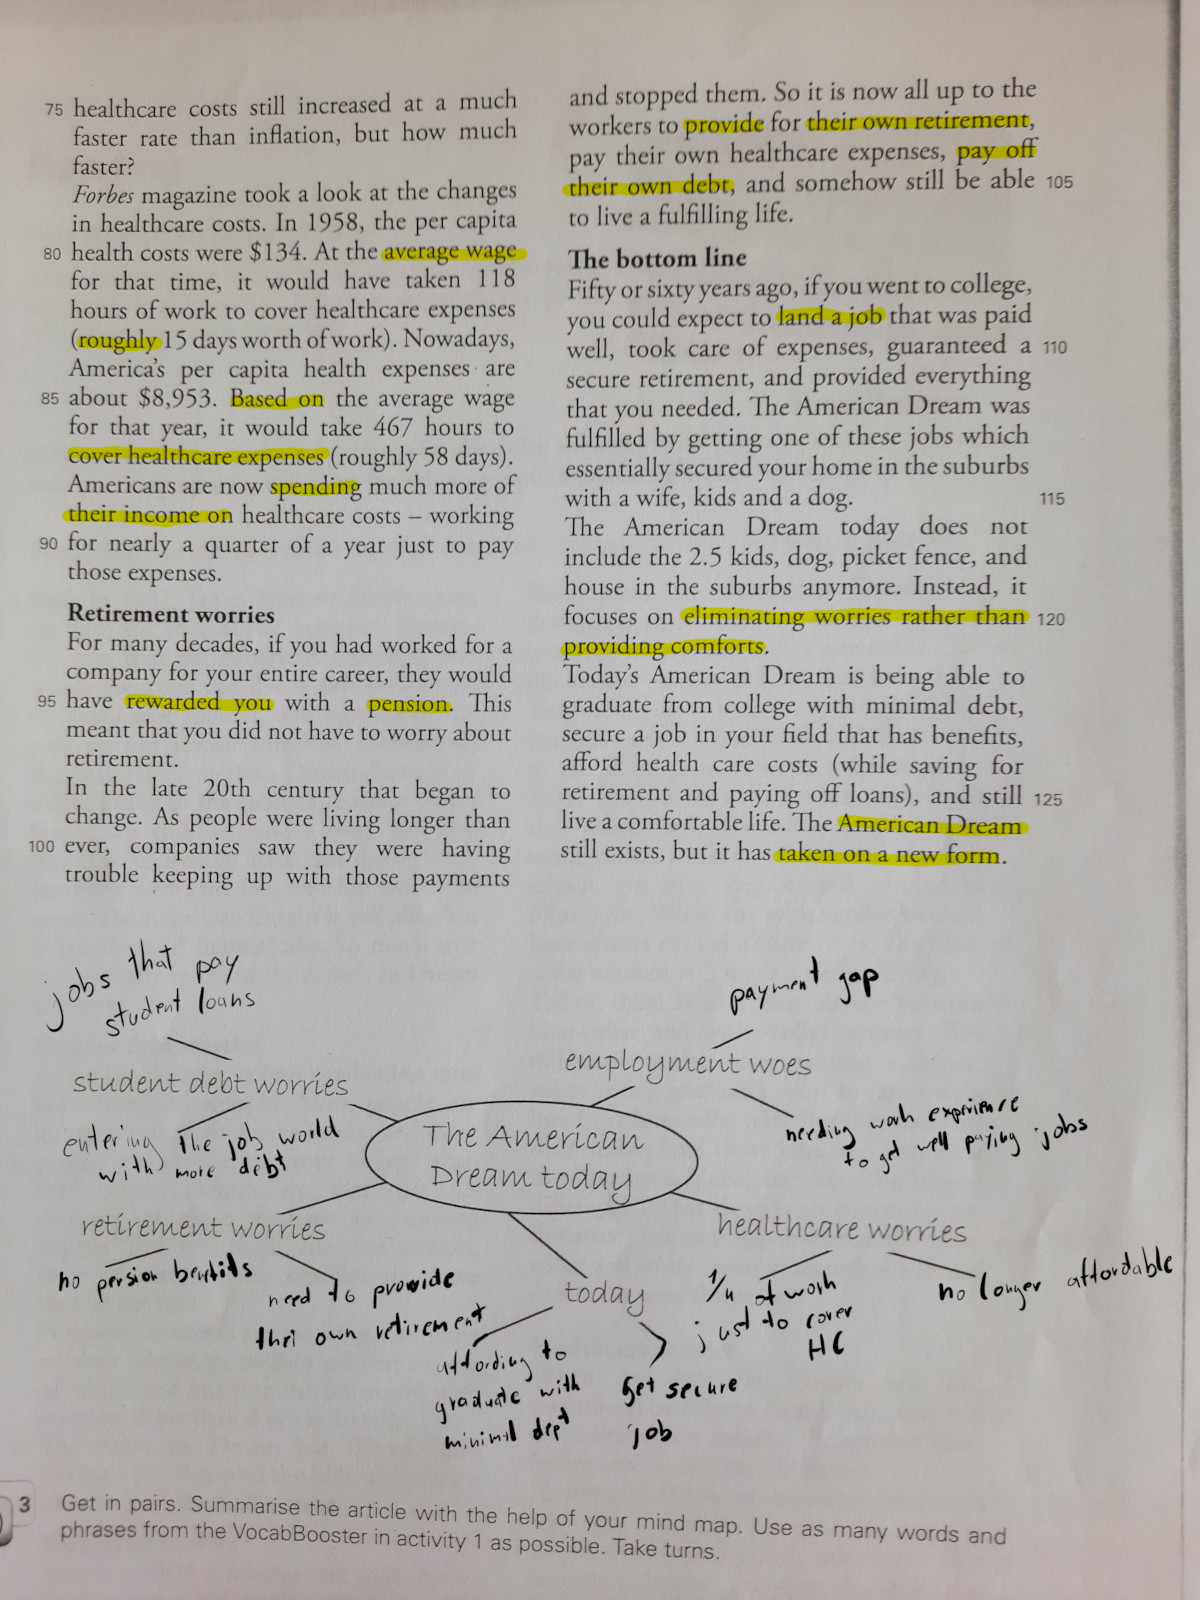 75 healthcare costs still increased at a much
faster rate than inflation, but how much
faster?
Forbes magazine took a look at the changes
in healthcare costs. In 1958, the per capita
80 health costs were $134. At the average wage
for that time, it would have taken 118
hours of work to cover healthcare expenses
(roughly 15 days worth of work). Nowadays,
America's per capita health expenses are
85 about $8,953. Based on the average wage
for that year, it would take 467 hours to
cover healthcare expenses (roughly 58 days).
Americans are now spending much more of
their income on healthcare costs – working
90 for nearly a quarter of a year just to pay
those expenses.
Retirement worries
For many decades, if you had worked for a
company for your entire career, they would
95 have rewarded you with a pension. This
meant that you did not have to worry about
retirement.
In the late 20th century that began to
change. As people were living longer than
100 ever, companies saw they were having
trouble keeping up with those payments
and stopped them. So it is now all up to the
workers to provide for their own retirement,
pay their own healthcare expenses, pay off
their own debt, and somehow still be able 105
to live a fulfilling life.
The bottom line
Fifty or sixty years ago, if you went to college,
you could expect to land a job that was paid
well, took care of expenses, guaranteed a 110
secure retirement, and provided everything
that you needed. The American Dream was
fulfilled by getting one of these jobs which
essentially secured your home in the suburbs
with a wife, kids and a dog. 115
The American Dream today does not
include the 2.5 kids, dog, picket fence, and
house in the suburbs anymore. Instead, it
focuses on eliminating worries rather than 120
providing comforts.
Today's American Dream is being able to
graduate from college with minimal debt,
secure a job in your field that has benefits,
afford health care costs (while saving for
retirement and paying off loans), and still 125
live a comfortable life. The American Dream
still exists, but it has taken on a new form.
jobs that pay
student loans
payment gap
student debt worries
employment woes
entering the job world
with more debt
The American
Dream today
needing work experience
to get well paying jobs
retirement worries
healthcare worries
no pension benefits
need to provide
thei own retirement
today
1/4 of work
just to cover
HC
no longer affordable
affording to
graduate with
minimal dept
Get secure
job
3 Get in pairs. Summarise the article with the help of your mind map. Use as many words and
phrases from the VocabBooster in activity 1 as possible. Take turns.